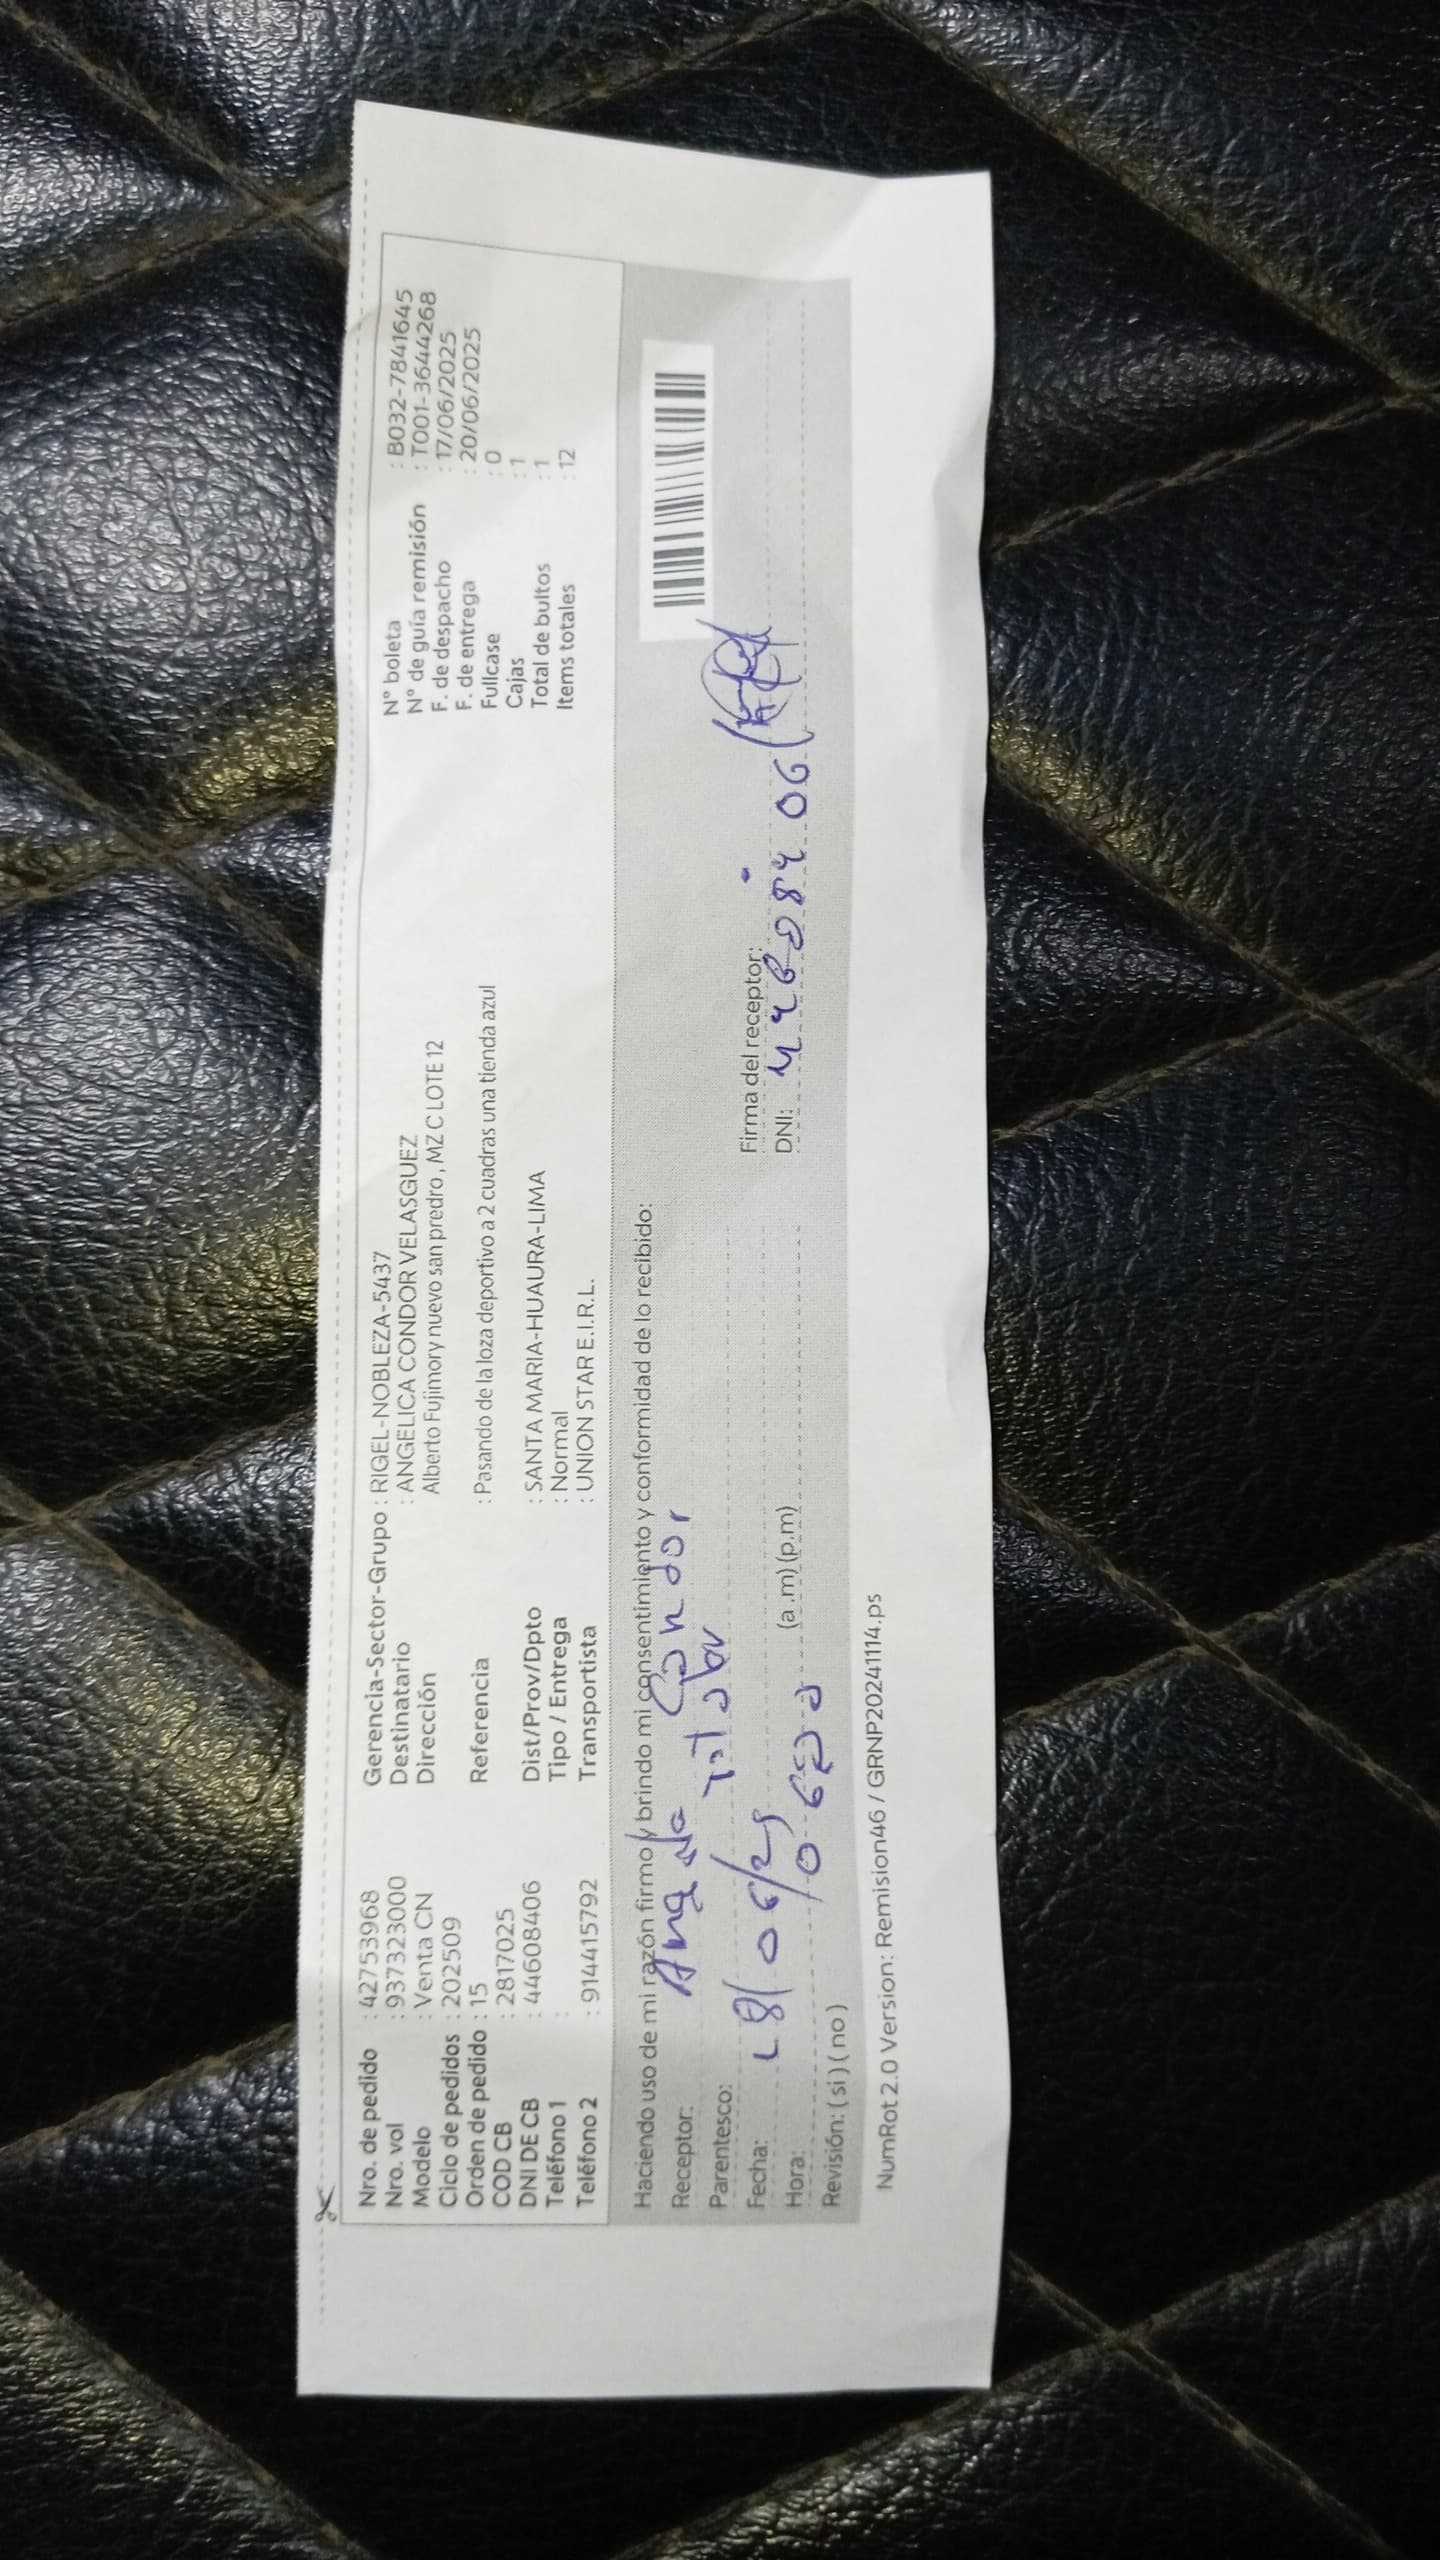 Nro. de pedido : 42753968
Nro. vol : 937323000
Modelo : Venta CN
Ciclo de pedidos : 202509
Orden de pedido : 15
COD CB : 2817025
DNI DE CB : 44608406
Teléfono 1 :
Teléfono 2 : 914415792
Gerencia-Sector-Grupo : RIGEL-NOBLEZA-5437
Destinatario : ANGELICA CONDOR VELASGUEZ
Dirección Alberto Fujimory nuevo san predro , MZ C LOTE 12
Referencia : Pasando de la loza deportivo a 2 cuadras una tienda azul
Dist/Prov/Dpto : SANTA MARIA-HUAURA-LIMA
Tipo / Entrega : Normal
Transportista : UNION STAR E.I.R.L.
N° boleta : B032-7841645
N° de guía remisión : T001-3644268
F. de despacho : 17/06/2025
F. de entrega : 20/06/2025
Fullcase : 0
Cajas : 1
Total de bultos : 1
Items totales : 12
Haciendo uso de mi razón firmo y brindo mi consentimiento y conformidad de lo recibido:
Receptor: Condor
Parentesco:
Fecha: 18/06/25
Hora: (a.m) (p.m)
Revisión: ( si ) ( no )
Firma del receptor:
DNI: 44608406
NumRot 2.0 Version: Remision46 / GRNP20241114.ps